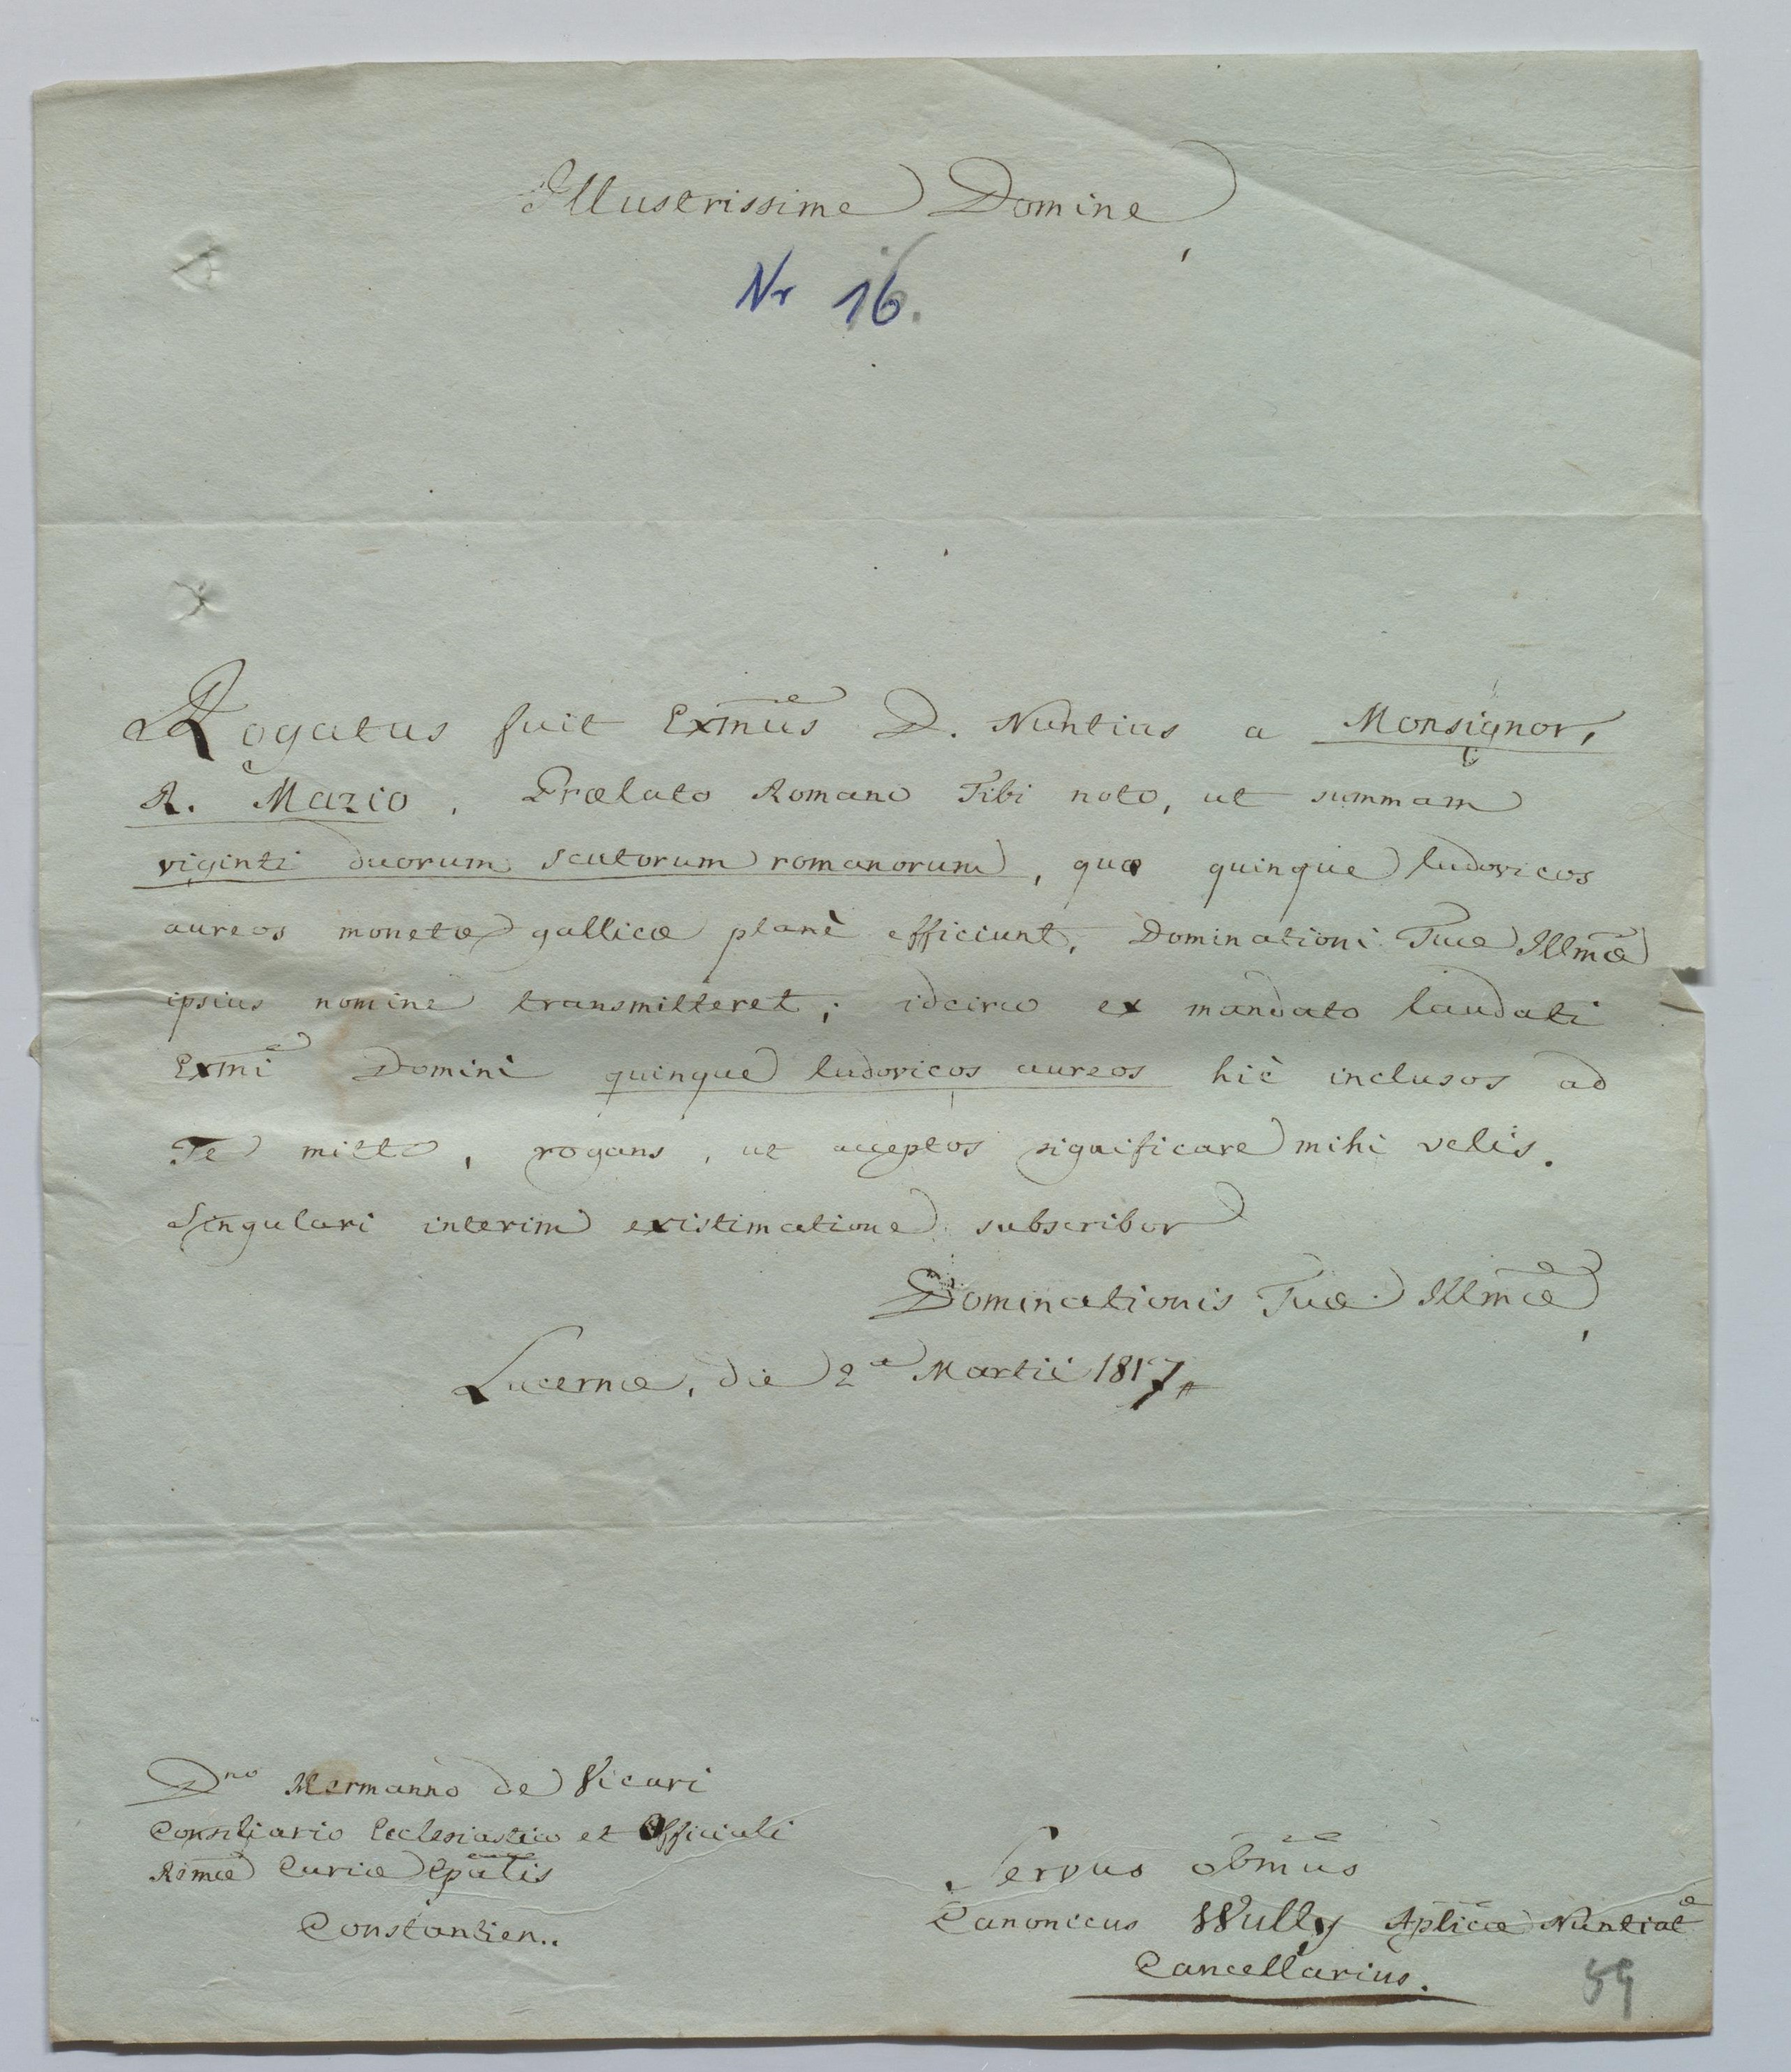 Illustrissime Domine,
Nr 16.
Rogatus fuit Exm̃us D. Nuntius a Monsignor,
R. Mazio, Prælato Romano Tibi noto, ut summam
viginti duorum scutorum romanorum, quæ quinque ludovicos
aureos monetæ gallicæ planè efficiunt, Dominationi Tuæ Illm̃æ
ipsius nomine transmitteret; idcirco ex mandato laudati
Exm̃i Domini quinque ludovicos aureos hìc inclusos ad
Te mitto, rogans, ut acceptos significare mihi velis.
Singulari interim existimatione subscribor
Dominationis Tuæ Illm̃æ,
Lucernæ, die 2a Martii 1817
Dno Hermanno de Vicari
Consiliario Ecclesiastico et Officiali
Rsmæ Curiæ Epãlis
Constantien..
Servus obm̃us
Canonicus Wully Aplicæ Nuntiat
Cancellarius.
59